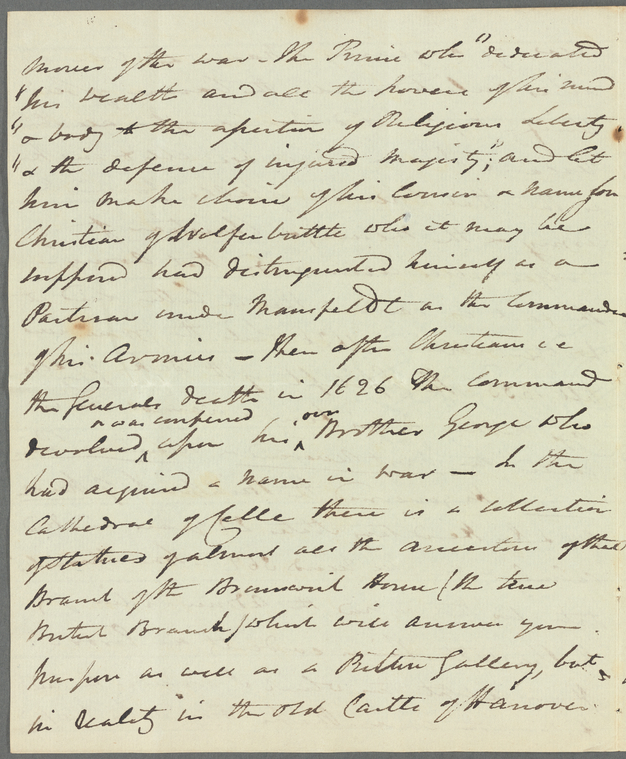 mover of the war - The Prince who "dedicated
"his wealth and all the powers of his mind
"& body to the assertion of Religious Liberty
"& the defence of injured Majesty"; and let
him make choice of his Cousin & namesake
Christian of Wolfenbuttle who it may be
supposed had distinguished himself as a
Partisan under Mansfeldt as the Commander
of his Armies – then after Christians i e
the Generals death in 1626 the Command
devolved & was conferred upon his own Brother George who
had acquired a name in war — In the
Cathedral of Celle there is a collection
of statues of almost all the ancestors of that
Branch of the Brunswick House (the true
British Branch) which will answer your
purpose as well as a Picture Gallery, but
in reality in the Old Castle of Hanover